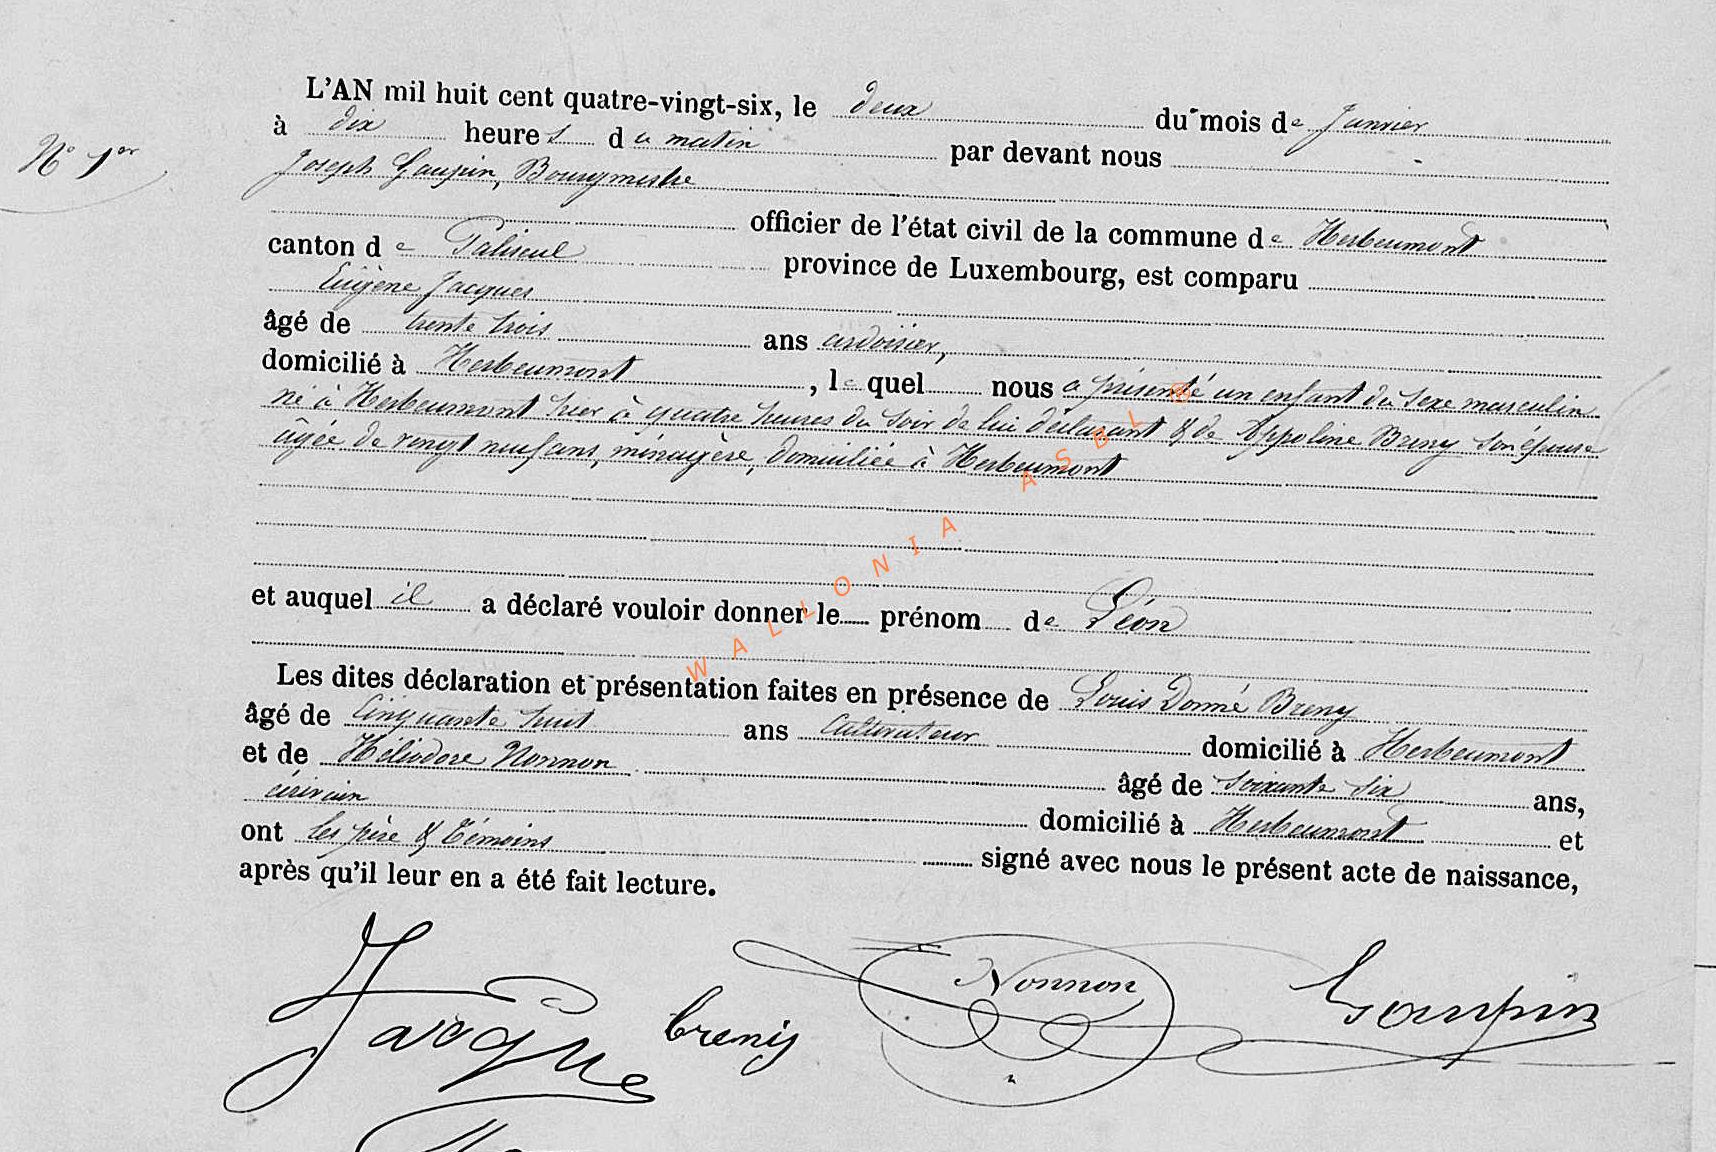 L'AN mil huit cent quatre-vingt-six, le deux du mois de Janvier
N° 1er
à dix heures du matin par devant nous
Joseph Gaupin, Bourgmestre
officier de l'état civil de la commune de Herbeumont
canton de Paliseul province de Luxembourg, est comparu
Eugène Jacques
âgé de trente trois ans ardoisier,
domicilié à Herbeumont, lequel nous a présenté un enfant du sexe masculin
né à Herbeumont hier à quatre heures du soir de lui déclarant & de Appoline Breny son épouse
âgée de vingt neuf ans, ménagère, domiciliée à Herbeumont
et auquel il a déclaré vouloir donner le prénom de Léon
Les dites déclaration et présentation faites en présence de Louis Donné Breny
âgé de cinquante huit ans Cultivateur domicilié à Herbeumont
et de Héliodore Nonnon âgé de soixante six ans,
écrivain domicilié à Herbeumont et
ont les père & témoins signé avec nous le présent acte de naissance,
après qu'il leur en a été fait lecture.
Jacque breny Nonnon Gaupin
WALLONIA ASBL ®